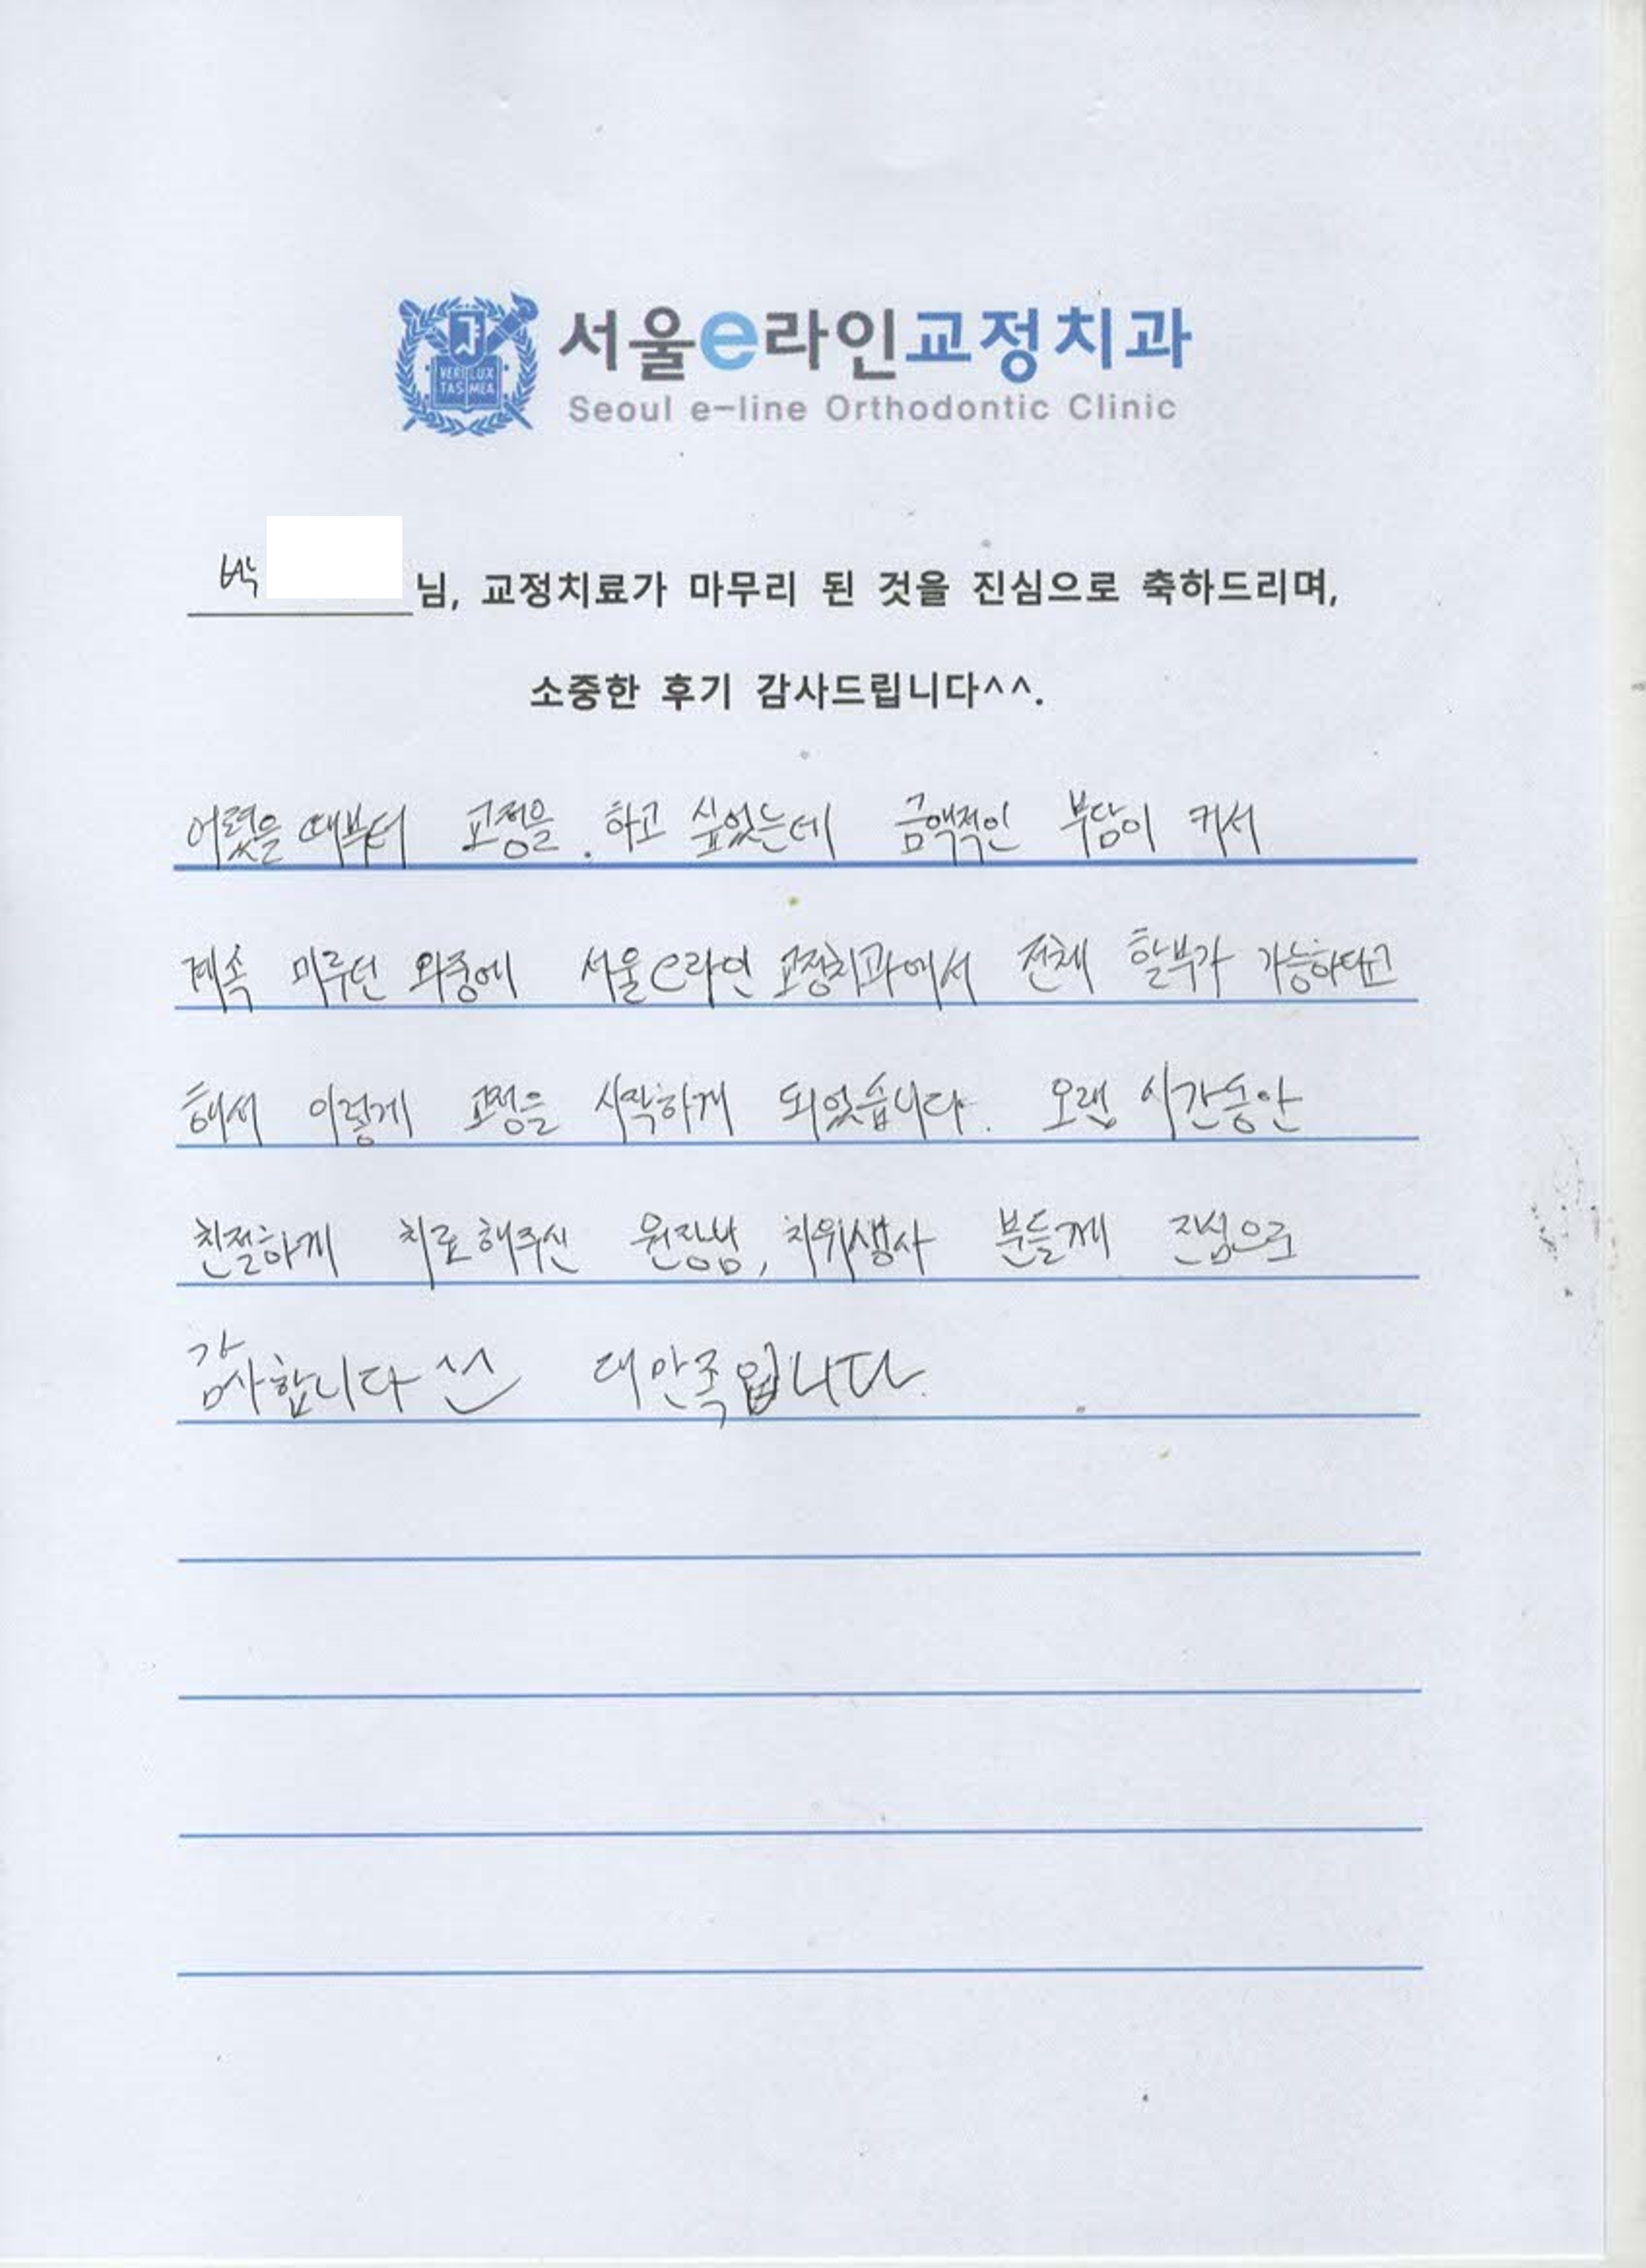 서울e라인교정치과
Seoul e-line Orthodontic Clinic
VERI LUX
TAS MEA
박 님, 교정치료가 마무리 된 것을 진심으로 축하드리며,
소중한 후기 감사드립니다^^.
어렸을 때부터 교정을 하고 싶었는데 금액적인 부담이 커서
계속 미루던 와중에 서울e라인 교정치과에서 전체 할부가 가능하다고
해서 이렇게 교정을 시작하게 되었습니다. 오랜 시간동안
친절하게 치료해주신 원장님, 치위생사 분들께 진심으로
감사합니다 ^^ 대만족입니다.